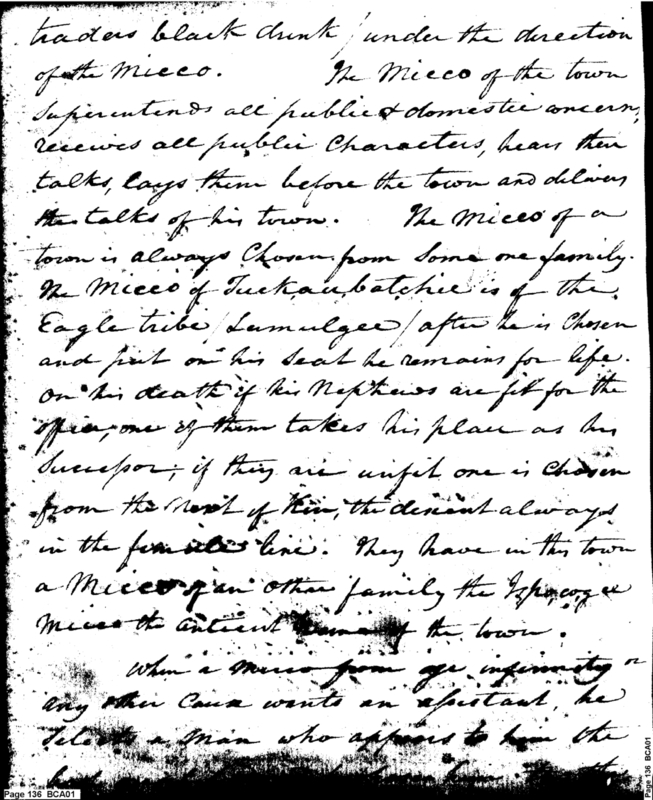 traders black drink / under the direction
of the Micco. The Micco of the town
Superintends all public & domestic concern,
receives all public Characters, hears their
talks, lays them before the town and delivers
the talks of his town. The Micco of a
town is always Chosen from Some one family.
The Micco of Tuckaubatchee is of the
Eagle tribe / Lumulgee / after he is Chosen
and put on his Seat he remains for life.
On his death if his Nephews are fit for the
office, one of them takes his place as his
Successor, if they are unfit one is chosen
from the Next of Kin, the descent always
in the female line. They have in this town
a Micco of an other family the
Micco the antient name of the town.
When a Micco from age infirmity or
any other Cause wants an assistant, he
Selects a man who appears to him the
Page 136 BCA01
Page 136 BCA01